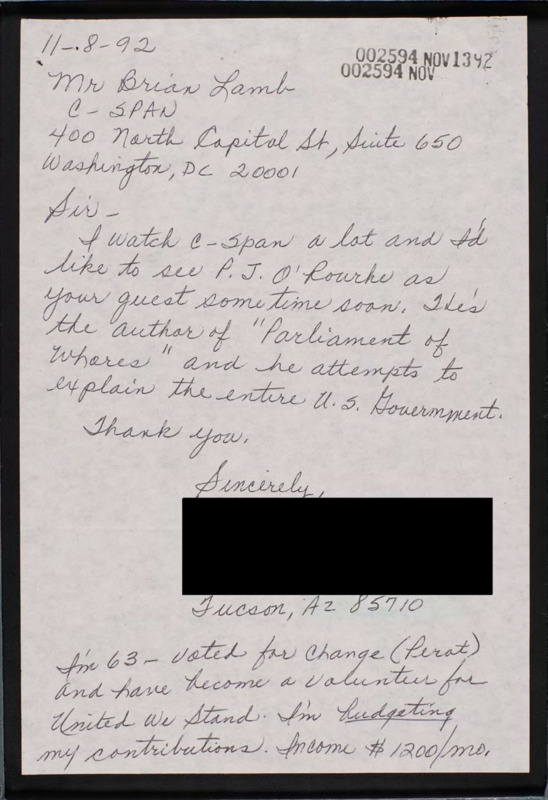 11-8-92
002594 NOV 13 92
002594 NOV
Mr Brian Lamb
C-SPAN
400 North Capitol St, Suite 650
Washington, DC 20001
Sir -
I watch C-Span a lot and I'd
like to see P. J. O'Rourke as
your guest sometime soon. He's
the author of "Parliament of
Whores" and he attempts to
explain the entire U.S. Government.
Thank you.
Sincerely,
Tucson, AZ 85710
I'm 63 - voted for change (Perot)
and have become a volunteer for
United We Stand. I'm budgeting
my contributions. Income $1200/mo.